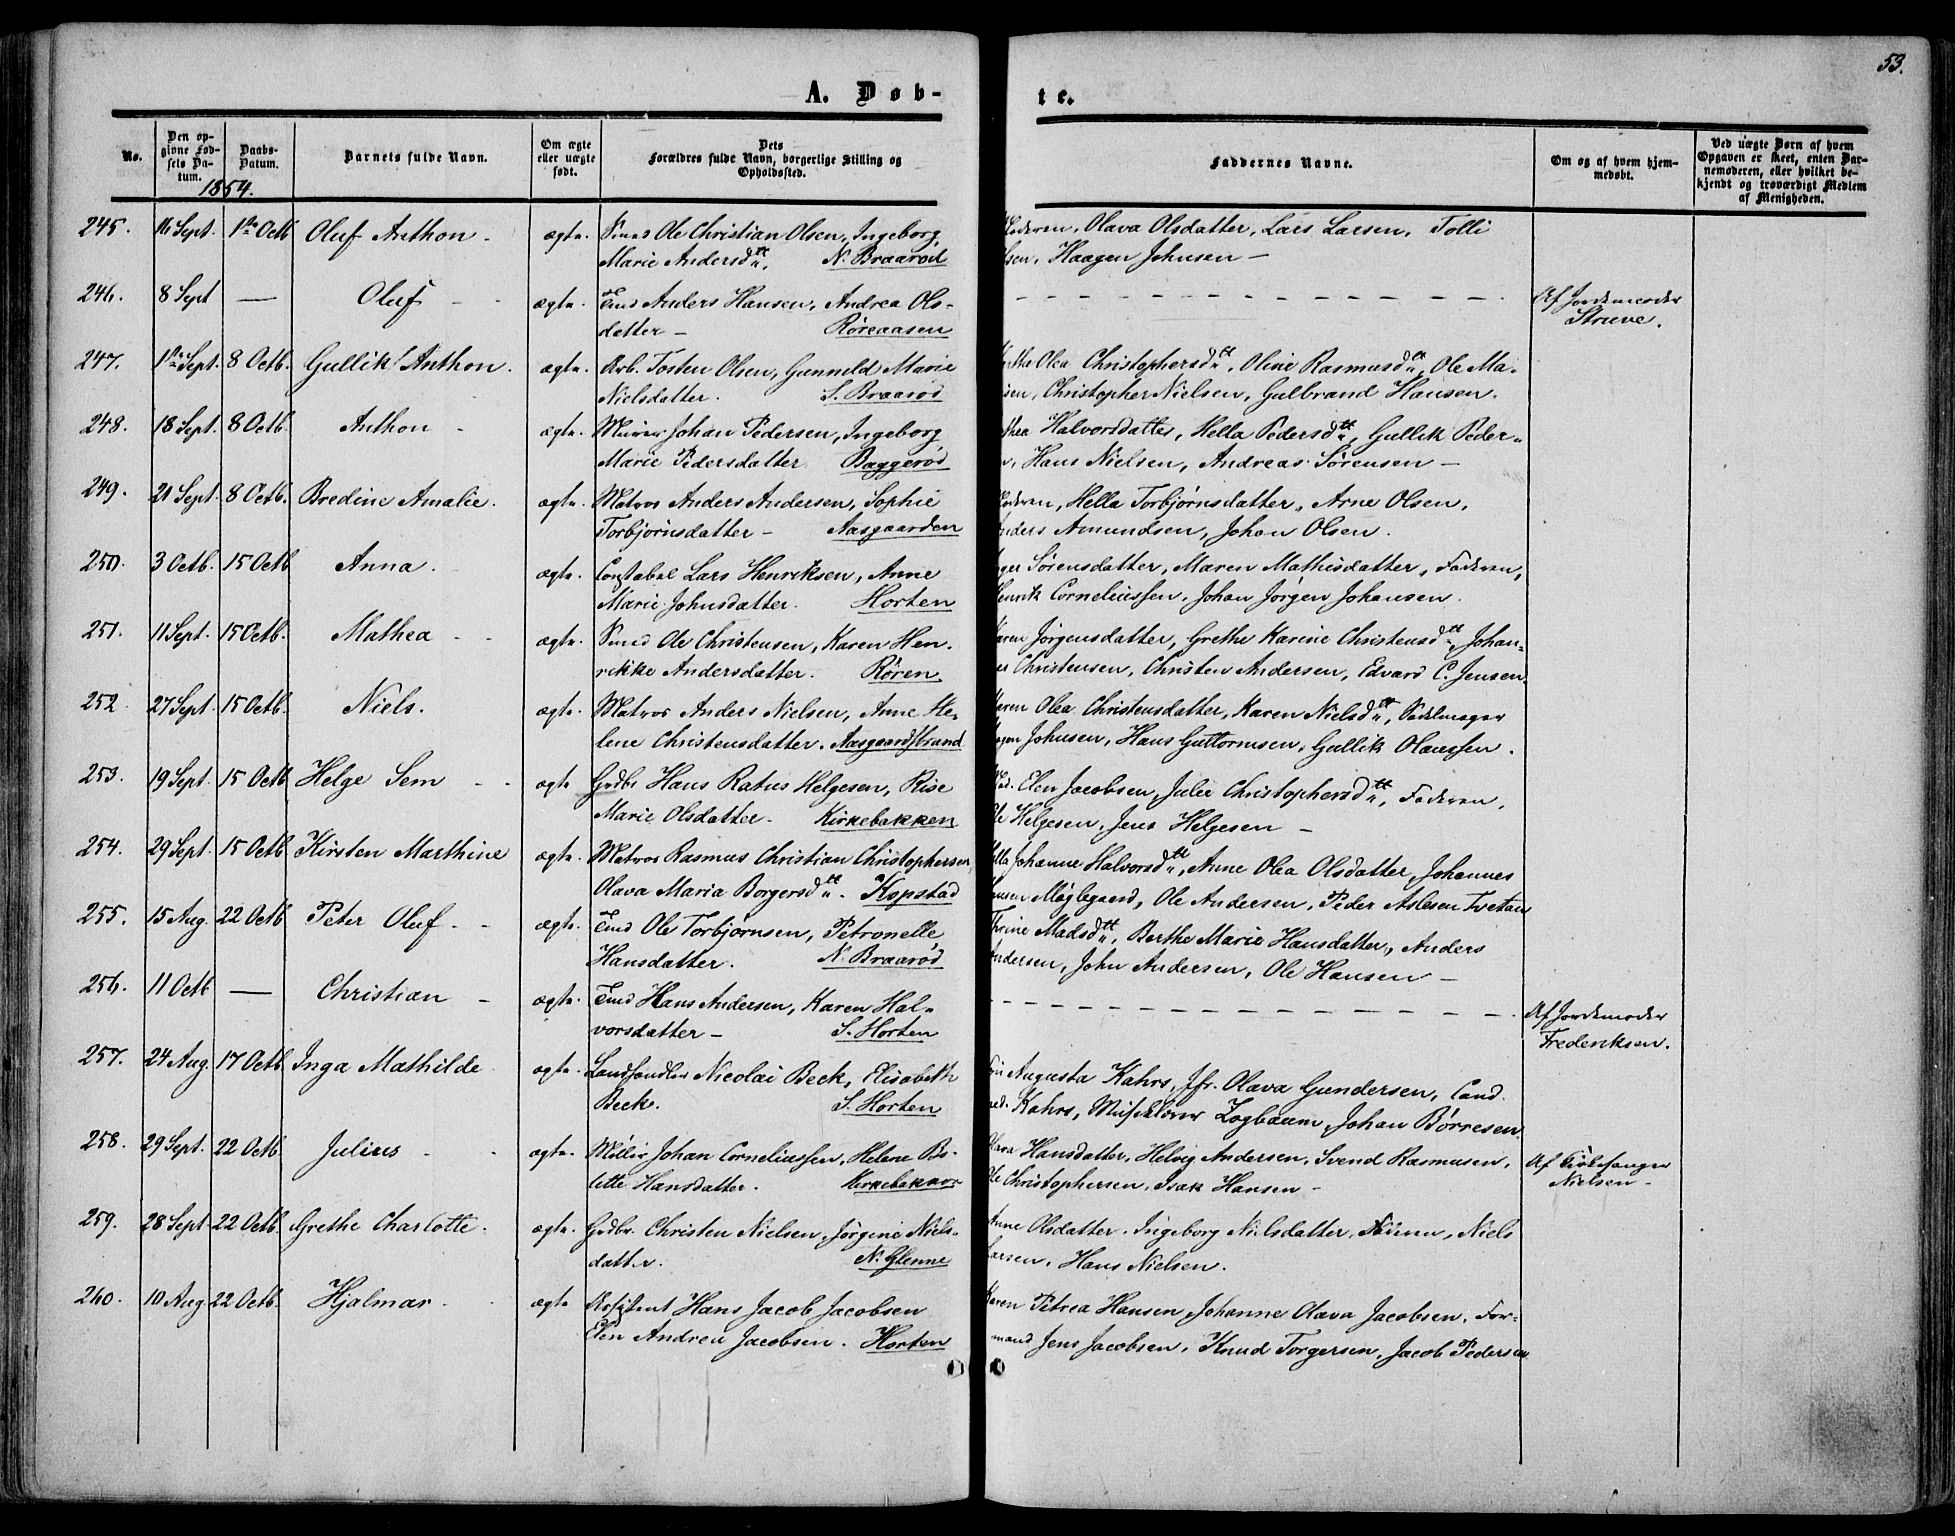 53.
A. Døb-
te.
No.
Den op-
givne Fød-
sels Da-
tum.
Daabs-
Datum.
Barnets fulde Navn.
Om ægte
eller uægte
født.
Dets
Forældres fulde Navn, borgerlige Stilling og
Opholdssted.
Faddernes Navne.
Om og af hvem hjem-
medøbt.
Ved uægte Børn af hvem
Opgaven er skeet, enten Bar-
nemoderen, eller hvilket be-
kjendt og troværdigt Medlem
af Menigheden.
1854.
245. 16 Sept. 1ste Octb Oluf Anthon. ægte. Smed Ole Christian Olsen, Ingeborg
Marie Andersdtt. N. Braarød
Olava Olsdatter, Lars Larsen, Tolli
Haagen Johnsen —
246. 8 Sept — Oluf ægte. Tmd Anders Hansen, Andrea Ols-
datter — Røreaasen
Af Jordemoder
Struve.
247. 1ste Sept. 8 Octb. Gullik Anthon. ægte. Arb. Tosten Olsen, Gunneld Marie
Nielsdatter. S. Braarød
Olea Christophersdtt, Oline Rasmusdtt, Ole Ma-
Christopher Nielsen, Gulbrand Hansen.
248. 18 Sept. 8 Octb. Anthon ægte. Murer Johan Pedersen, Ingeborg
Marie Pedersdatter Baggerød
Halvorsdatter, Hella Pedersdtt, Gullik Peder-
Hans Nielsen, Andreas Sørensen —
249. 21 Sept. 8 Octb. Bredine Amalie. ægte. Matros Anders Andersen, Sophie
Torbjørnsdatter — Aasgaarden
Hella Torbjørnsdatter, Arne Olsen,
Anders Amundsen, Johan Olsen.
250. 3 Octb. 15 Octb Anna. ægte. Constabel Lars Henriksen, Anne
Marie Johnsdatter. Horten
Sørensdatter, Maren Mathisdatter, Faderen,
Henrik Corneliussen, Johan Jørgen Johansen.
251. 11 Sept. 15 Octb. Mathea ægte. Smed Ole Christensen, Karen Hen-
rikke Andersdatter. Røren
Karen Jørgensdatter, Grethe Karine Christensdtt, Johan-
nes Christensen, Christen Andersen, Edvard C. Jensen.
252. 27 Sept. 15 Octb. Niels. ægte. Matros Anders Nielsen, Anne He-
lene Christensdatter. Aasgaardstrand
Karen Olea Christensdatter, Karen Nielsdtt, Sadelmager
Johnsen, Hans Guttormsen, Gullik Olaussen.
253. 19 Sept. 15 Octb Helge Sem ægte Gdbr Hans Ratius Helgesen, Rise
Marie Olsdatter. Kirkebakken
Mad. Elen Jacobsen, Julie Christophersdtt, Faderen,
Ole Helgesen, Jens Helgesen —
254. 29 Sept. 15 Octb Kirsten Marthine ægte. Matros Rasmus Christian Christophersen,
Olava Maria Borgersdtt. Kopstad
Johanne Halvorsdtt, Anne Olea Olsdatter, Johannes
Møglegaard, Ole Andersen, Peder Aslesen Tvetan
255. 15 Aug. 22 Octb Peter Oluf. ægte. Tmd Ole Torbjørnsen, Petronelle
Hansdatter. N. Braarød
Thrine Madsdtt, Berthe Marie Hansdatter, Anders
Andersen, John Andersen, Ole Hansen —
256. 11 Octb — Christian ægte. Tmd Hans Andersen, Karen Hal-
vorsdatter — S. Horten
Af Jordemoder
Frederiksen.
257. 24 Aug. 17 Octb. Inga Mathilde ægte. Landhandler Nicolai Beck, Elisabeth
Beck. S. Horten
Augusta Kahrs, Jfr. Olava Gundersen, Cand.
med. Kahrs, Zogbaum, Johan Børresen.
258. 29 Sept. 22 Octb Julius ægte. Møller Johan Corneliussen, Helene Bo-
lette Hansdatter. Kirkebakken
Olava Hansdatter, Helvig Andersen, Svend Rasmusen,
Ole Christophersen, Isak Hansen —
Af Kirkesanger
Nielsen —
259. 28 Sept 22 Octb. Grethe Charlotte. ægte. Gdbr. Christen Nielsen, Jørgine Niels-
datter. N. Glenne
Anne Olsdatter, Ingeborg Nielsdatter, Faderen, Niels
Larsen, Hans Nielsen.
260. 10 Aug 22 Octb. Hjalmar. ægte Assistent Hans Jacob Jacobsen
Elen Andrea Jacobsen. Horten
Karen Petrea Hansen, Johanne Olava Jacobsen, For-
mand Jens Jacobsen, Knud Torgersen, Jacob Pedersen